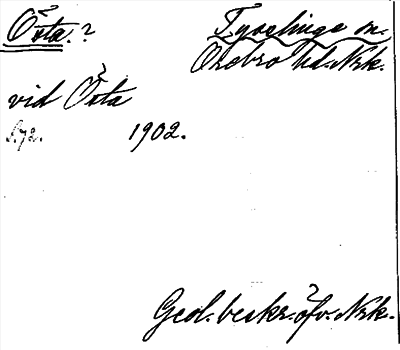 Östa. ? Tysslinge sn.
Örebro hd. Nrk.
vid Östa
S. 72. 1902.
Geol. beskr. öfv. Nrk.